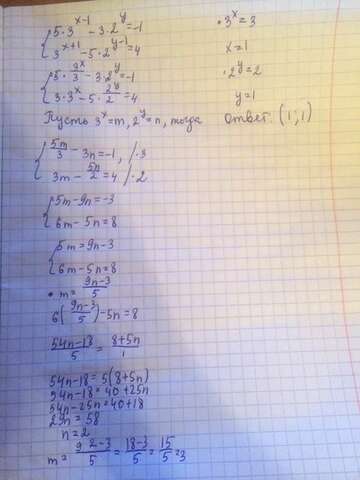 5·3^(x-1) - 3·2^y = -1
3^(x+1) - 5·2^(y-1) = 4
5·3^x/3 - 3·2^y = -1
3·3^x - 5·2^y/2 = 4
Пусть 3^x = m, 2^y = n, тогда
5m/3 - 3n = -1, /·3
3m - 5n/2 = 4 /·2
5m - 9n = -3
6m - 5n = 8
5m = 9n - 3
6m - 5n = 8
• m = (9n-3)/5
6((9n-3)/5) - 5n = 8
(54n-18)/5 = (8+5n)/1
54n - 18 = 5(8+5n)
54n - 18 = 40 + 25n
54n - 25n = 40 + 18
29n = 58
n = 2
m = (9·2-3)/5 = (18-3)/5 = 15/5 = 3
• 3^x = 3
x = 1
• 2^y = 2
y = 1
Ответ: (1;1)